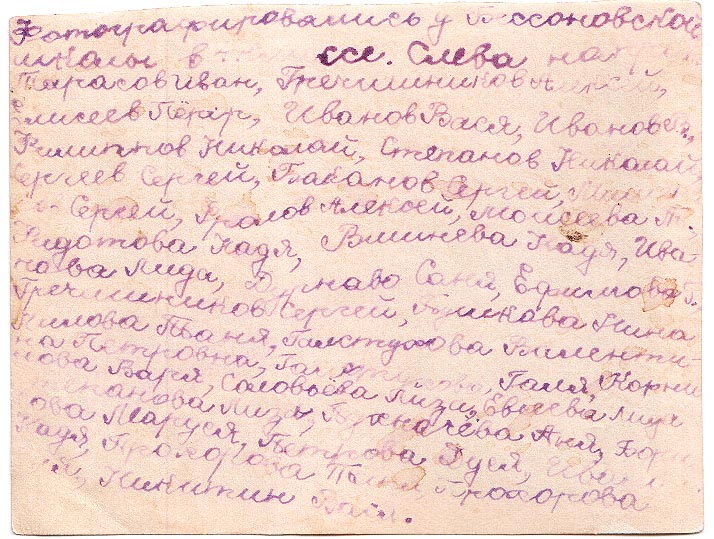 Фотографировались у Бессоновской
школы в ссе. Слева напр
Тарасов Иван, Гречишников Алексей,
Елисеев Пётр, Иванов Вася, Иванов
Филиппов Николай, Степанов Николай,
Сергеев Сергей, Баканов Сергей,
Сергей, Фролов Алексей, Моисеева Т.,
Федотова Надя, Надя, Ива-
нова Лида, Дурнаво Саня, Ефимова
Гречишников Сергей, Нина
Таня, Галстухова Вилленти-
на Петровна, Галстухова Галя, Корни
лова Варя, Соловьёва Лиза, Лида
Степанова Лиза, Аня, Бори
сова Маруся, Петрова Дуся,
Надя, Прохорова Прохорова
Никитин Ваня.